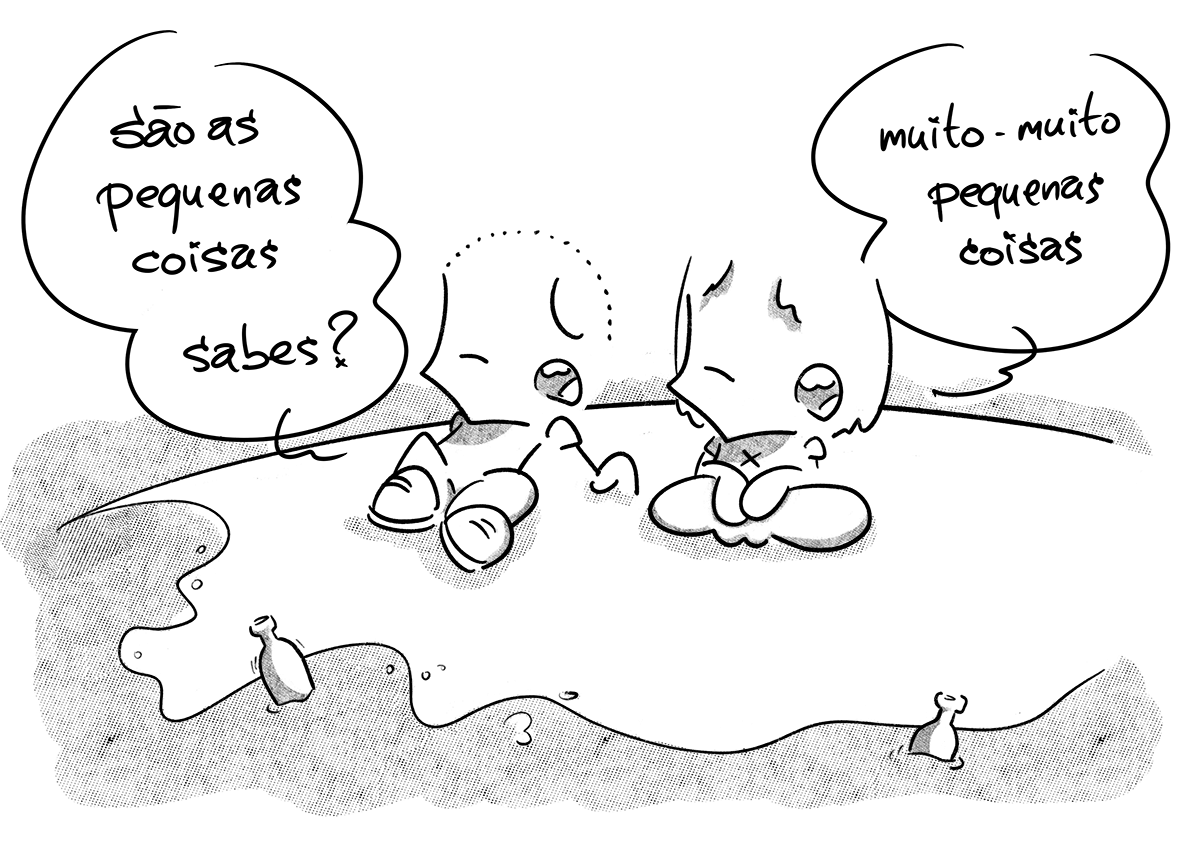 são as
pequenas
coisas
sabes?
muito-muito
pequenas
coisas